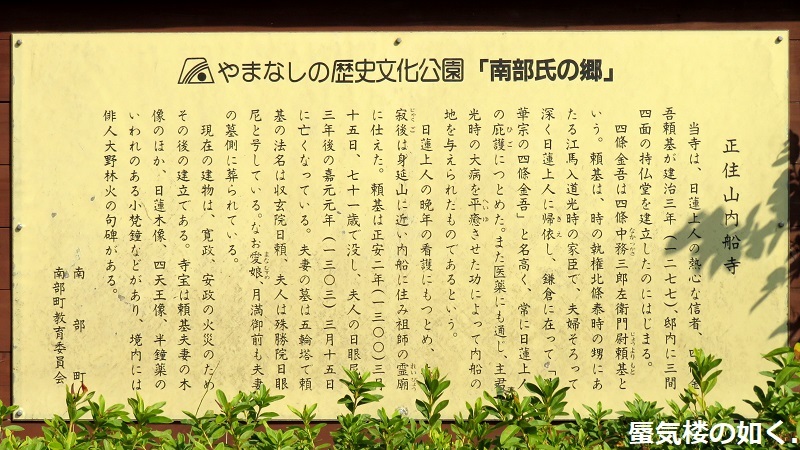 やまなしの歴史文化公園「南部氏の郷」
正住山内船寺
当寺は、日蓮上人の熱心な信者、四
吾頼基が建治三年(一二七七)、邸内に三間
四面の持仏堂を建立したのにはじまる。
四條金吾は四條中務三郎左衛門尉頼基と
いう。頼基は、時の執権北條泰時の甥にあ
たる江馬入道光時の家臣で、夫婦そろって
深く日蓮上人に帰依し、鎌倉に在って「
華宗の四條金吾」と名高く、常に日蓮上人
の庇護につとめた。また医薬にも通じ、主君
光時の大病を平癒させた功によって内船の
地を与えられたものであるという。
日蓮上人の晩年の看護にもつとめ、
寂後は身延山に近い内船に住み祖師の霊廟
に仕えた。頼基は正安二年(一三〇〇)三月
十五日、七十一歳で没し、夫人の日眼尼
三年後の嘉元元年(一三〇三)三月十五日
に亡くなっている。夫妻の墓は五輪塔で頼
基の法名は収玄院日頼、夫人は殊勝院日眼
尼と号している。なお愛娘、月満御前も夫妻
の墓側に葬られている。
現在の建物は、寛政、安政の火災のため
その後の建立である。寺宝は頼基夫妻の木
像のほか、日蓮木像、四天王像、半鐘薬の
いわれのある小梵鐘などがあり、境内には
俳人大野林火の句碑がある。
南部町
南部町教育委員会
蜃気楼の如く.